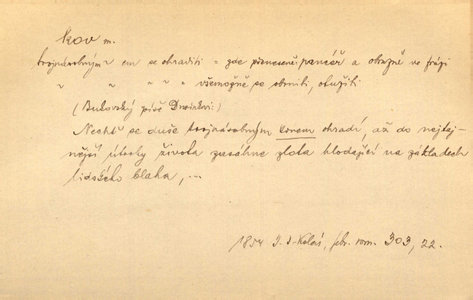 kov m.
trojnásobným ~ em se ohraditi = zde přeneseně: pancéř a obrazně ve frázi
" " " " všemožně se obrniti, obužiti
(Bukovský píše Dvořákovi:)
Nechť se duše trojnásobným kovem ohradí, až do nejtaj-
nější útroby života zasáhne zloba hlodající na základech
lidského blaha, ...
1854 J. J. Kolár, febr. rom. 303, 22.